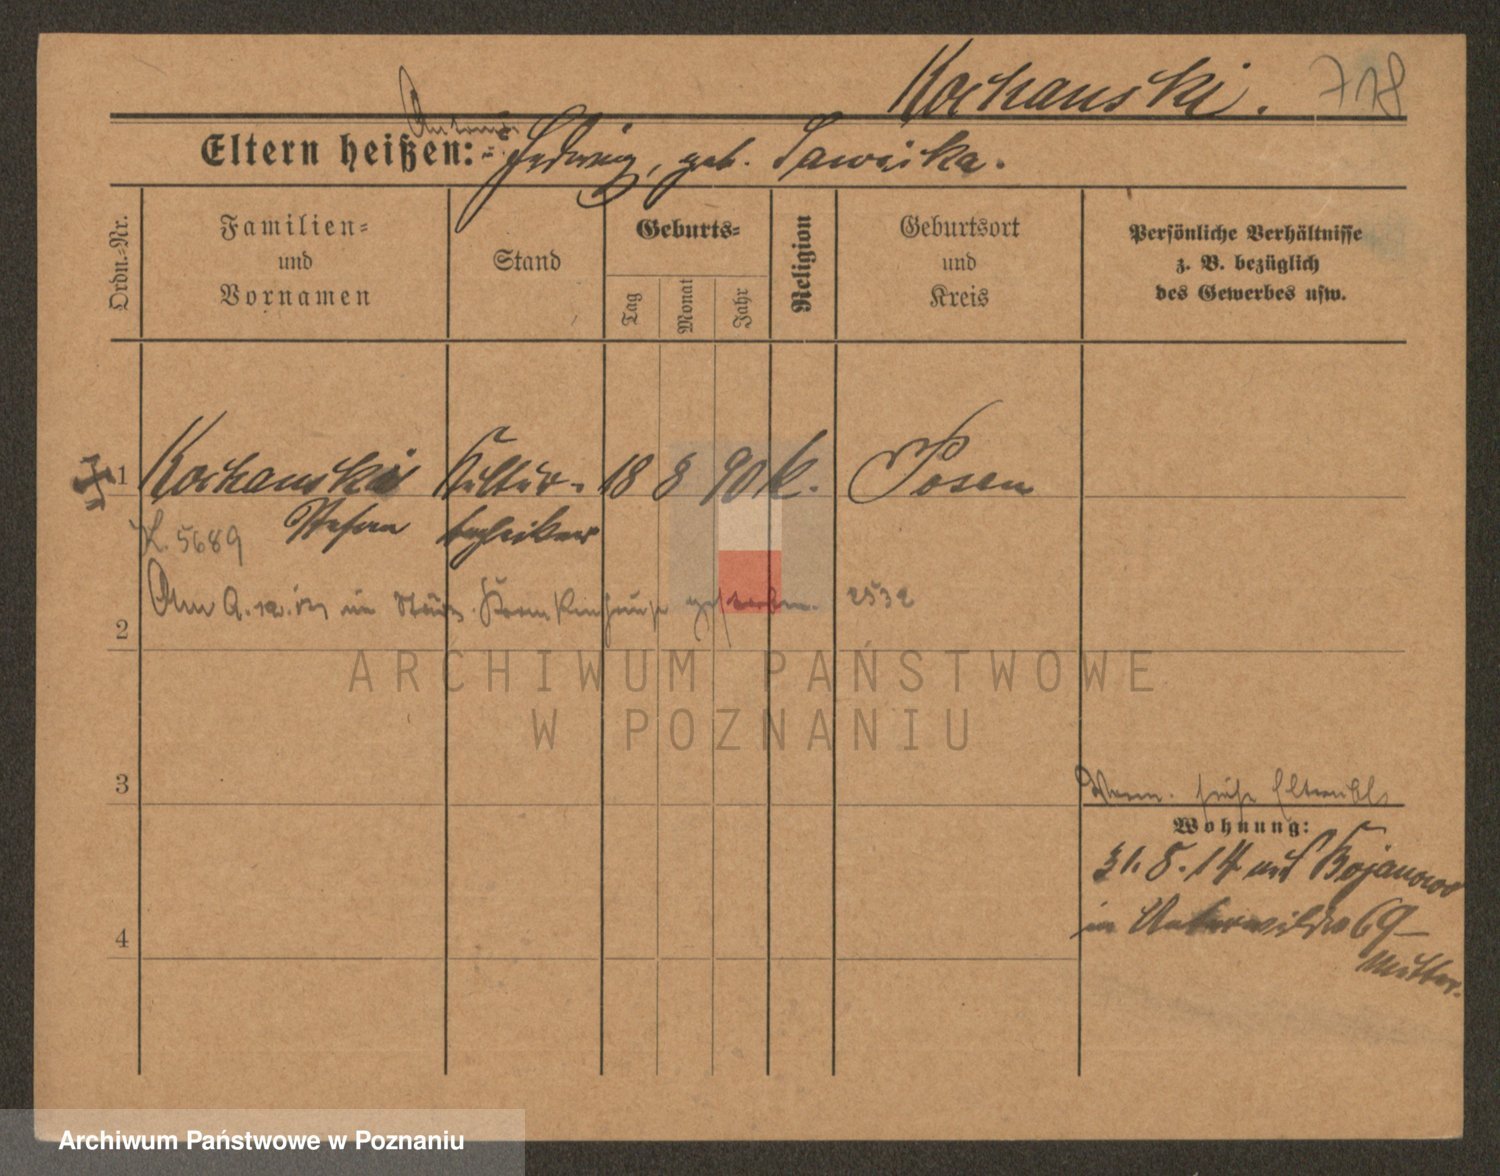 Kochanski. 718
Anton
Eltern heißen: - Hedwig, geb. Sawicka.
Ordn.-Nr.
Familien-
und
Vornamen
Stand
Geburts-
Tag
Monat
Jahr
Religion
Geburtsort
und
Kreis
Persönliche Verhältnisse
z. B. bezüglich
des Gewerbes usw.
1 Kochanski Kultur- 18 8 90 k. Posen
K. 5689 Stefan techniker
Am 9.12. im Städt. Krankenhause gestorben. 2532
2
ARCHIWUM PAŃSTWOWE
W POZNANIU
3
Verm. siehe
Wohnung:
31.8.14 aus Bojanowo
in Unterwilda 69
Mutter.
4
Archiwum Państwowe w Poznaniu